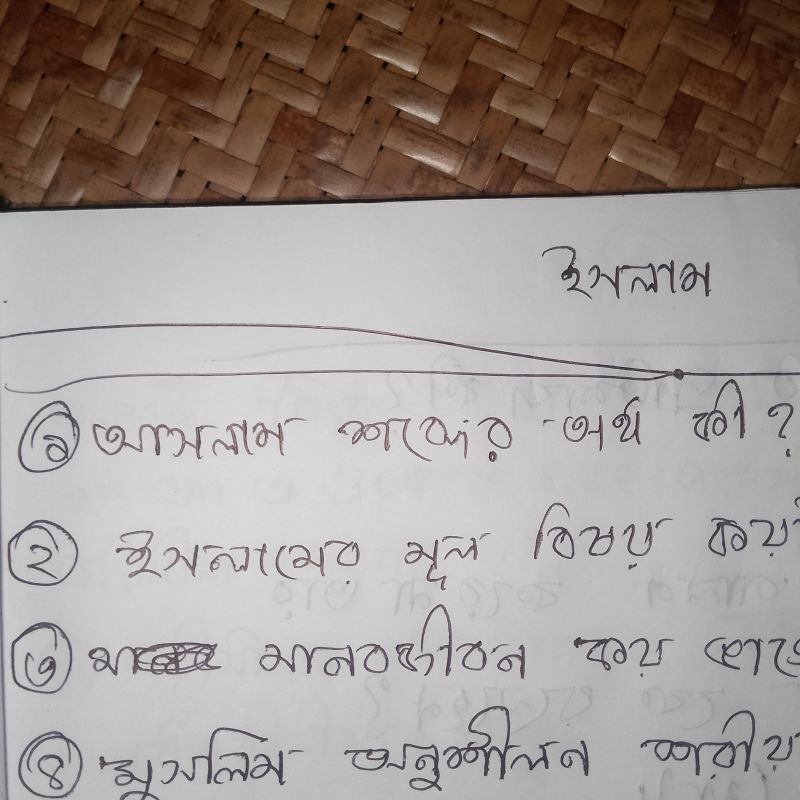 ইসলাম
১ আসলাম শব্দের অর্থ কী?
২ ইসলামের মূল বিষয় কয়
৩ মানবজীবন কয়
৪ মুসলিম অনুশীলন শরীয়